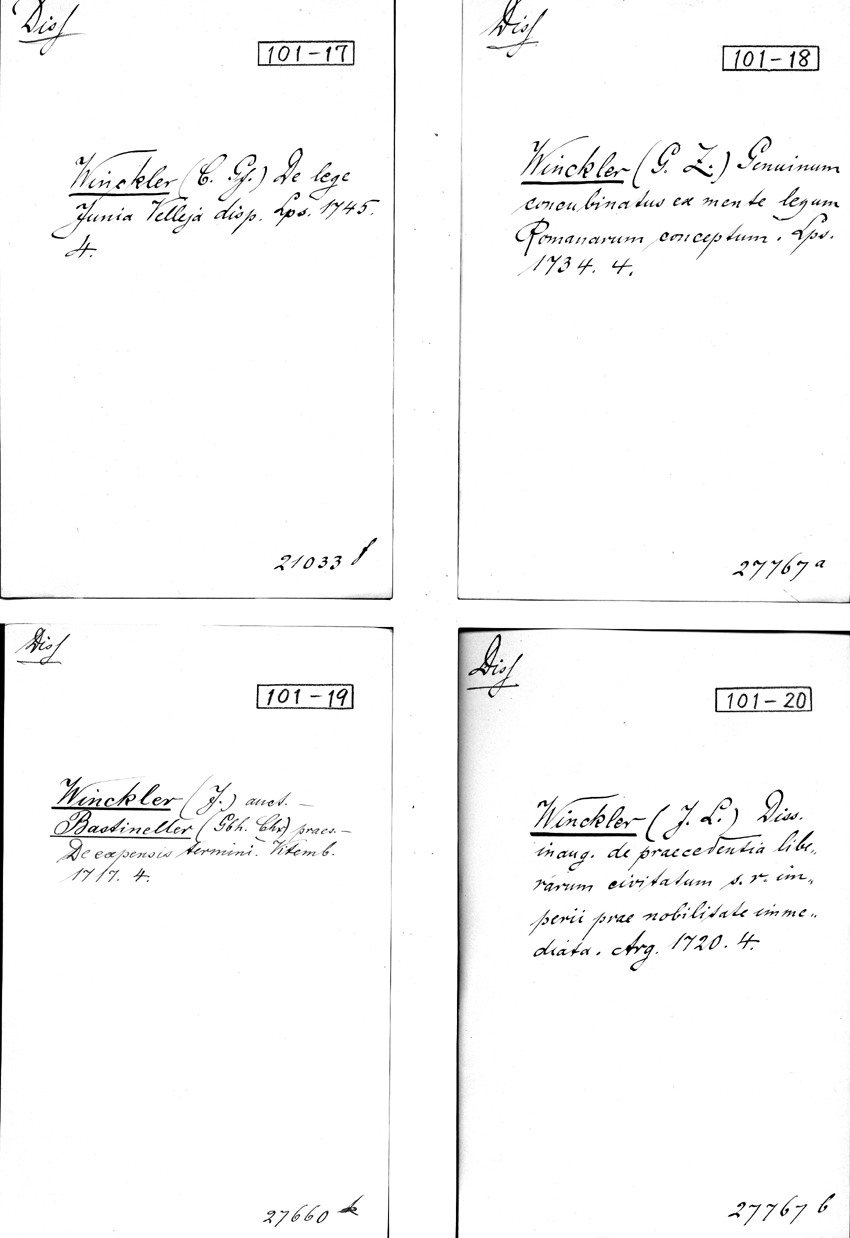 Diss
101-17
Winckler (C. Gf.) De lege
Junia Velleja disp. Lps. 1745.
4.
21033 f
Diss
101-18
Winckler (G. Z.) Genuinum
concubinatus ex mente legum
Romanarum conceptum. Lps.
1734. 4.
27767 a
Diss
101-19
Winckler (J.) auct. —
Bastineller (Gbh. Chr) praes. —
De expensis termini. Vtemb.
1717. 4.
27660
Diss
101-20
Winckler (J. L.) Diss.
inaug. de praecedentia libe„
rarum civitatum s. r. im„
perii prae nobilitate imme„
diata. Arg. 1720. 4.
27767 b